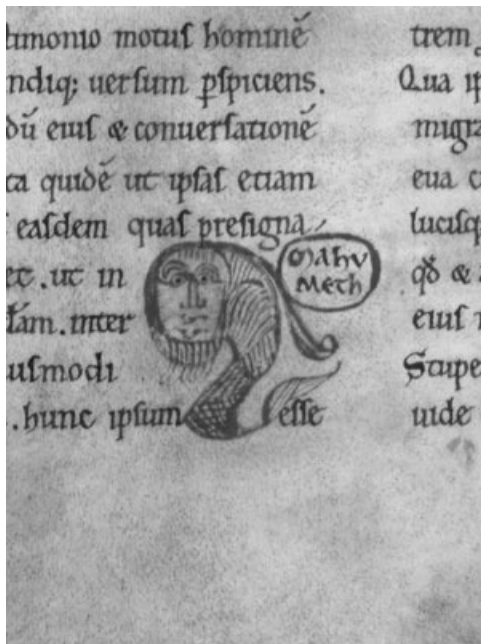 timonio motus hominē
ndiq; uersum pspiciens.
dū eius & conuersationē
ta quidē ut ipsas etiam
easdem quas presigna
et. ut in
. inter
usmodi
. hunc ipsum esse
Mahu
meth
trem
Qua ip
migra
eua c
lucisq
qđ & a
eius
Stupe
uide